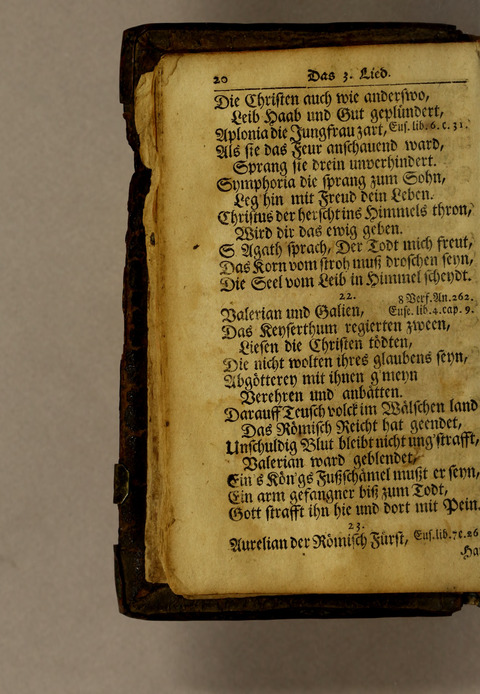 20 Das 3. Lied.
Die Christen auch wie anderswo,
Leib Haab und Gut geplündert,
Aplonia die Jungfrau zart, Eus. lib. 6. c. 31.
Als sie das Feur anschauend ward,
Sprang sie drein unverhindert.
Symphoria die sprang zum Sohn,
Leg hin mit Freud dein Leben.
Christus der herscht ins Himmels thron,
Wird dir das ewig geben.
S Agath sprach, Der Todt mich freut,
Das Korn vom stroh muß droschen seyn,
Die Seel vom Leib in Himmel scheydt.
22. 8 Verf. An. 262.
Valerian und Galien, Euse. lib. 4. cap. 9.
Das Keyserthum regierten zween,
Liesen die Christen tödten,
Die nicht wolten ihres glaubens seyn,
Abgötterey mit ihnen g'meyn
Verehren und anbätten.
Darauff Teusch volck im Wälschen land
Das Römisch Reicht hat geendet,
Unschuldig Blut bleibt nicht ung'strafft,
Valerian ward geblendet,
Ein's Kön'gs Fußschämel mußt er seyn,
Ein arm gefangner biß zum Todt,
Gott strafft ihn hie und dort mit Pein.
23.
Aurelian der Römisch Fürst, Eus. lib. 7. c. 26